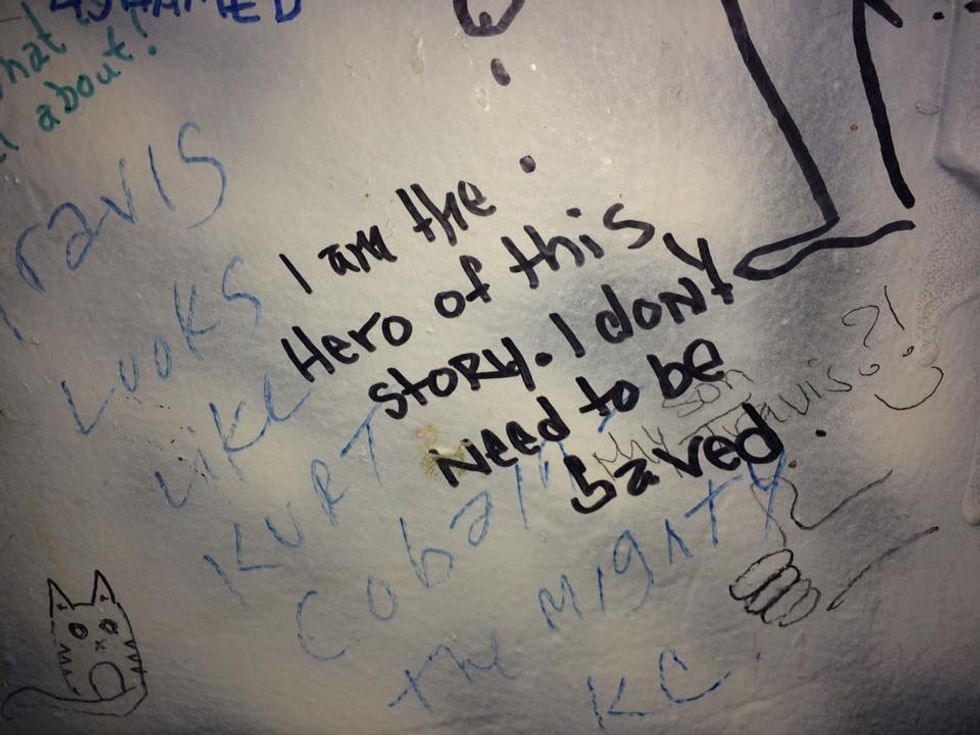 ASHAMED
about!
I am the
Hero of this
story. I dont
Need to be
saved.
Travis
Looks
Like
KURT
Cobain
the Mighty
KC
My son
Travis?!